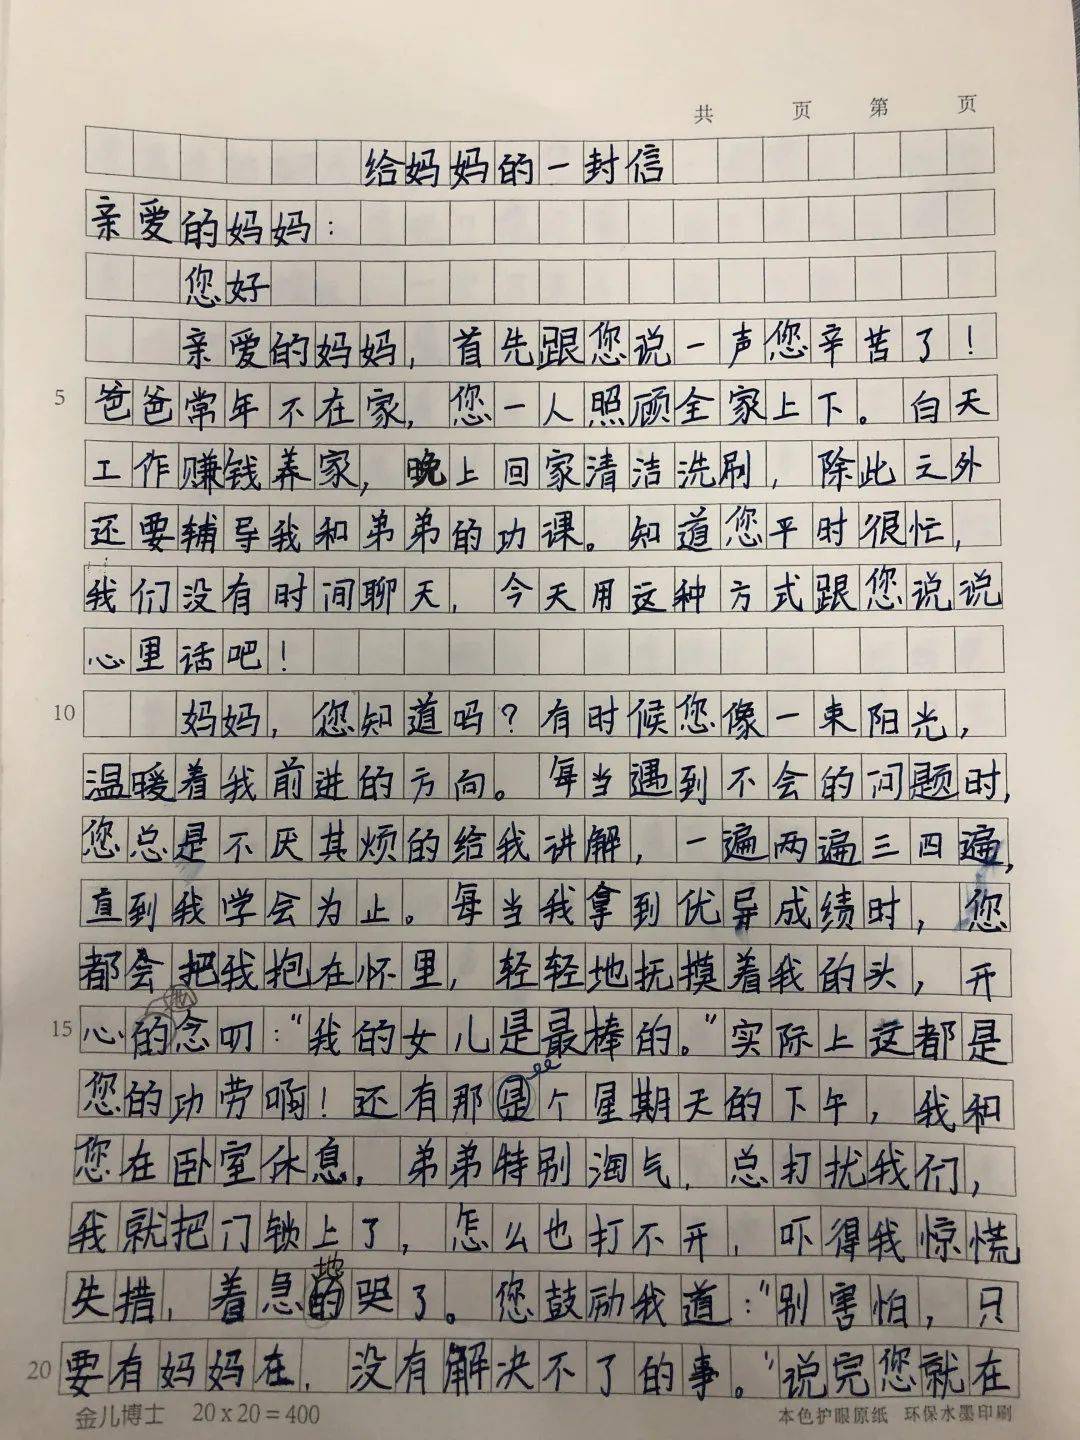 共 页 第 页
给妈妈的一封信
亲爱的妈妈:
您好
亲爱的妈妈,首先跟您说一声您辛苦了!
5 爸爸常年不在家,您一人照顾全家上下。白天
工作赚钱养家,晚上回家清洁洗刷,除此之外
还要辅导我和弟弟的功课。知道您平时很忙,
我们没有时间聊天,今天用这种方式跟您说说
心里话吧!
10 妈妈,您知道吗?有时候您像一束阳光,
温暖着我前进的方向。每当遇到不会的问题时,
您总是不厌其烦的给我讲解,一遍两遍三四遍,
直到我学会为止。每当我拿到优异成绩时,您
都会把我抱在怀里,轻轻地抚摸着我的头,开
地
15 心的念叨:“我的女儿是最棒的。”实际上这都是
您的功劳啊!还有那是个星期天的下午,我和
您在卧室休息,弟弟特别淘气,总打扰我们,
我就把门锁上了,怎么也打不开,吓得我惊慌
地
失措,着急的哭了。您鼓励我道:“别害怕,只
20 要有妈妈在,没有解决不了的事。”说完您就在
金儿博士 20x20=400 本色护眼原纸 环保水墨印刷